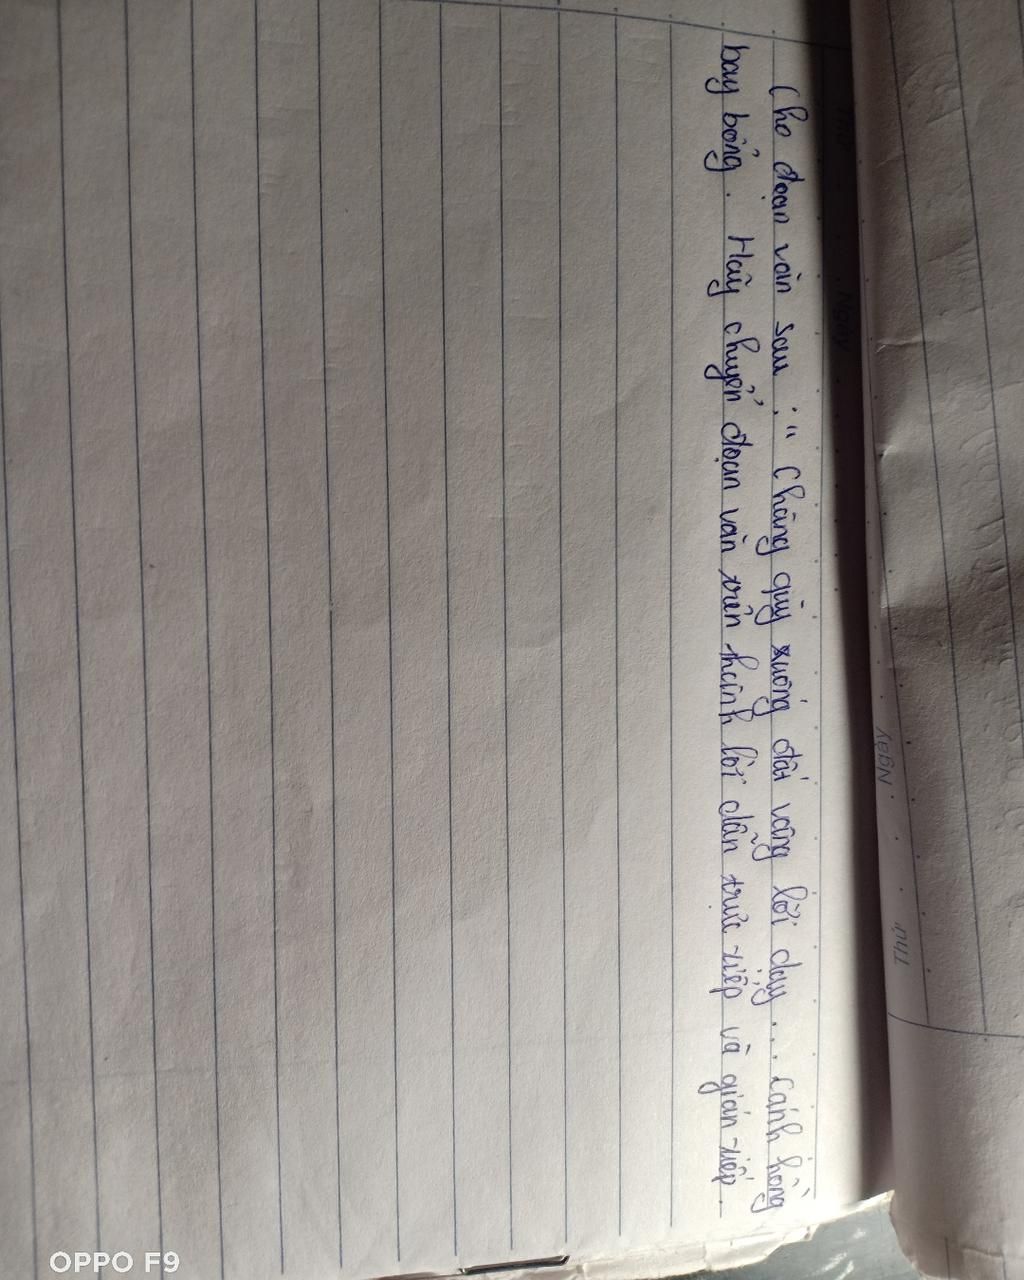 Cho đoạn văn sau : " Chàng qùy xuống đất vâng lời dạy ... cánh hồng
bay bổng . Hãy chuyển đoạn văn trên thành lời dẫn trực tiếp và gián tiếp .
Thứ
Ngày
Ngày
Thứ
OPPO F9